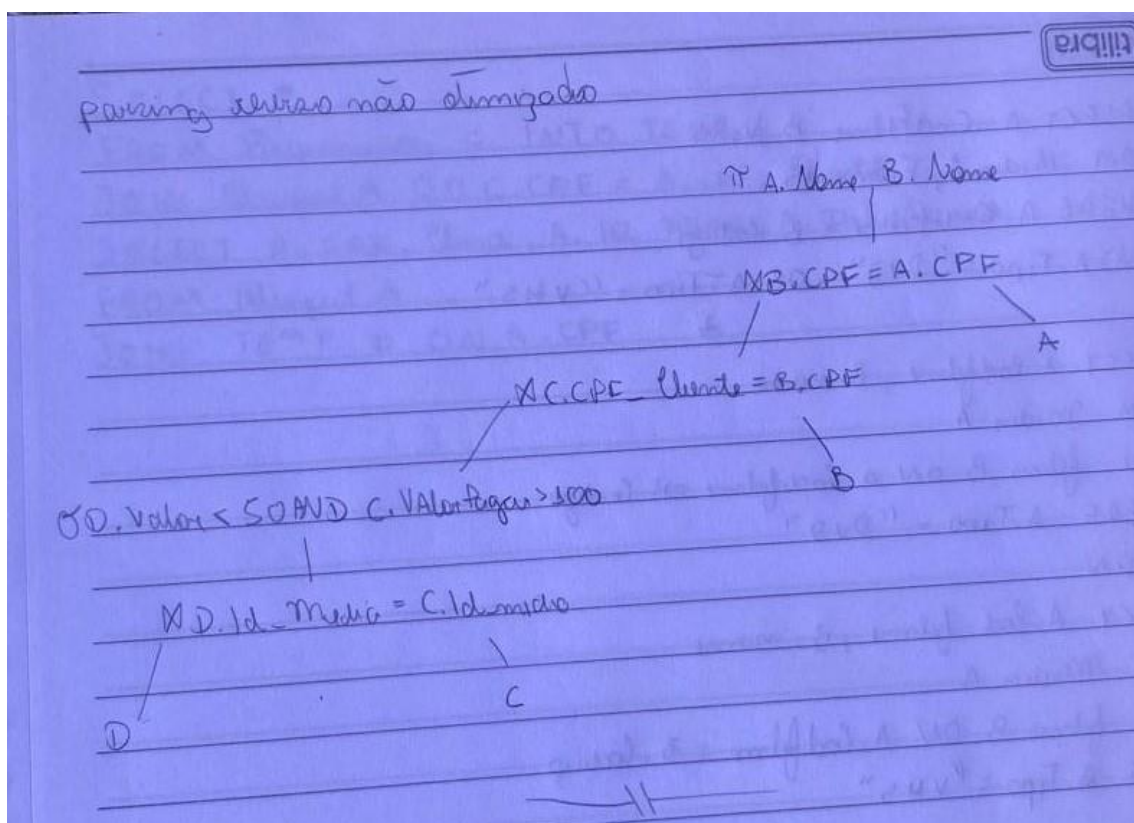 tilibra
parsing versão não otimizado
π A. Nome, B. Nome
⋈B.CPF = A.CPF
A
⋈C.CPF_Cliente = B.CPF
B
σD.Valor < 50 AND C.VAlorPagar > 100
⋈D.Id_Media = C.Id_midia
C
D